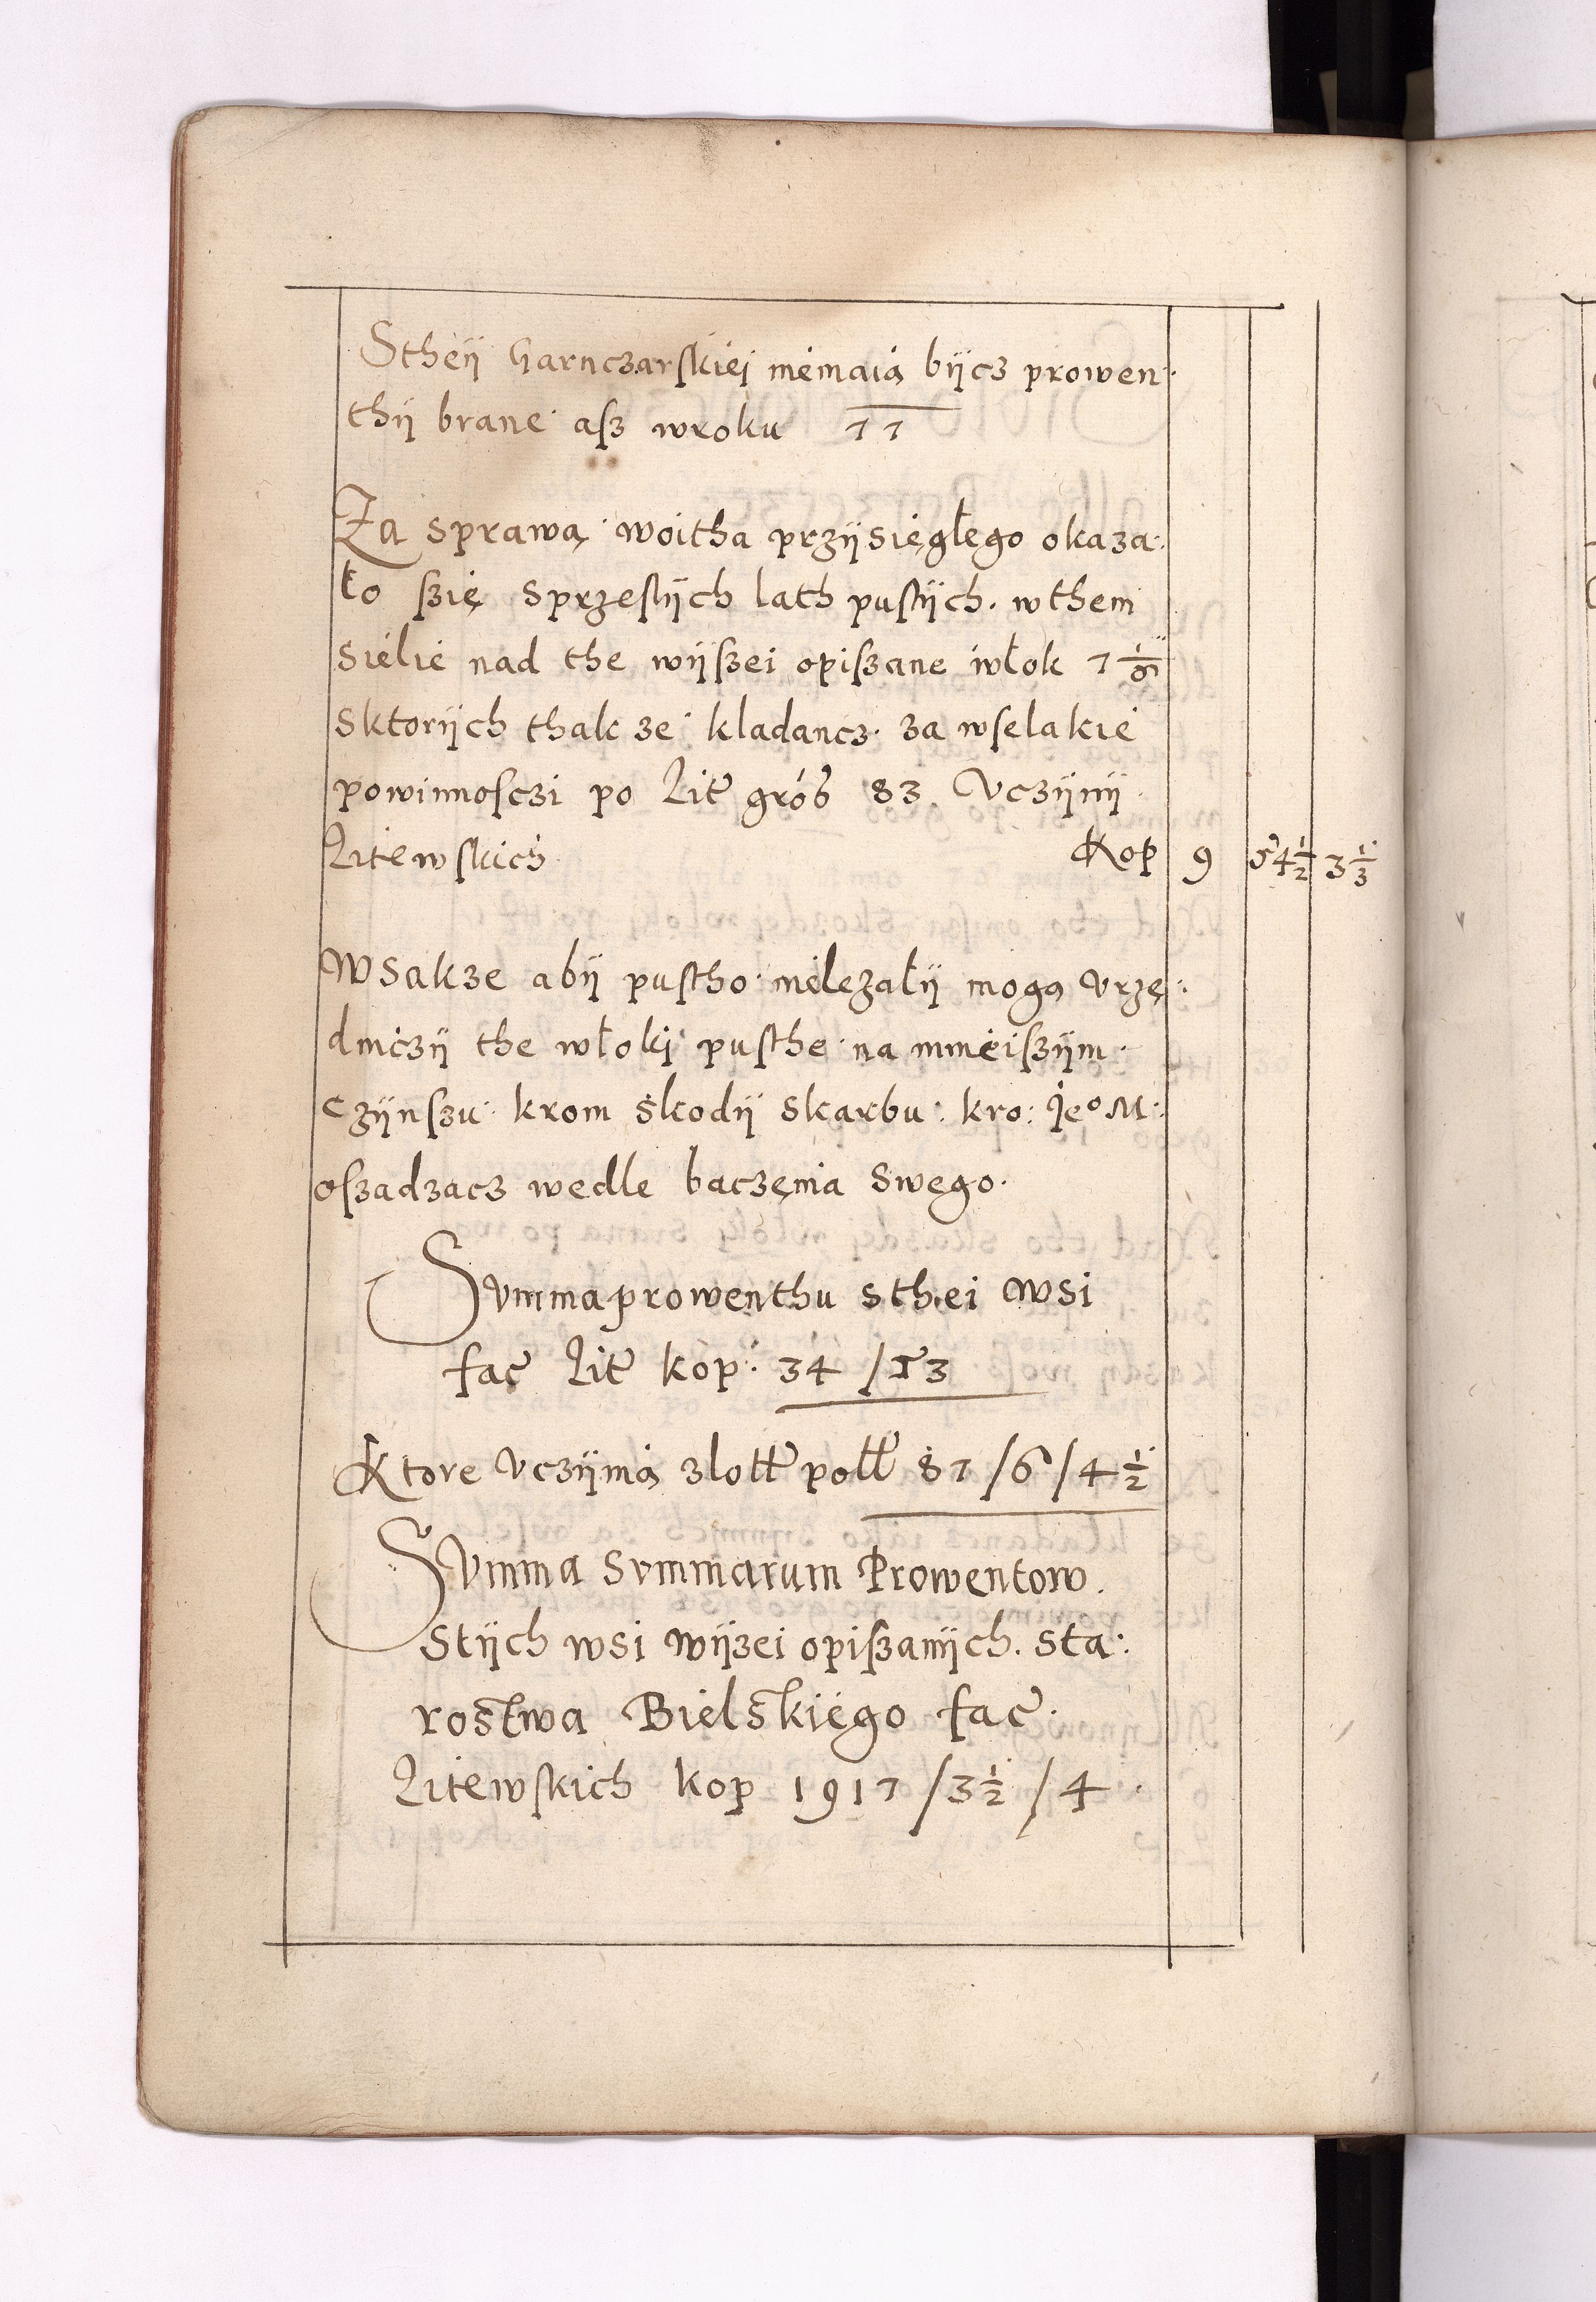 Stheÿ Garnczarskiei niemaią bÿcz prowen
thÿ brane asz wroku 77
Za sprawą woitha przÿsięgłego okaza
ło szię Sprzesłÿch lath pustÿch. wthem
sielie nad the wÿszei opiszane włok 7
Sktorÿch thak ze kladancz za wselakie
powinnosczi po Lit grob 83. Vczÿnÿ
Litewskich Kop 9 54 1/2 3 1/3
Wsakze abÿ pustho nielezałÿ mogą Vrzę
dniczÿ the włoki pusthe na mnieiszÿm
czÿnszu krom skodÿ skarbu: kro: Jeo M:
oszadzacz wedle baczęnia Swego.
Summa prowenthu sthei wsi
fac Lit kop: 34 / 13
Ktore Vczÿnią zlott poll 87 / 6 / 4 1/2
Summa Summarum Prowentow.
Stÿch wsi wÿzei opiszanÿch. Sta:
rostwa Bielskiego fac
Litewskich kop 1917 / 3 1/2 / 4